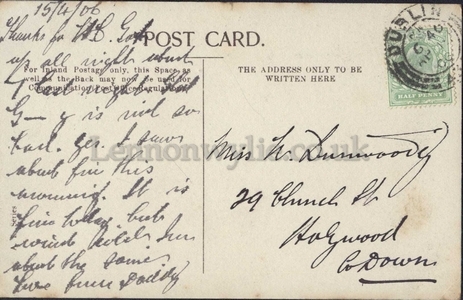 15/4/06
Thanks for
up all right
POST CARD.
For Inland Postage only, this Space, as
well as the Back may now be used for
Communication. Post Office Regulation.
THE ADDRESS ONLY TO BE
WRITTEN HERE
DUBLIN
HALF PENNY
G— y is not so
bad yet. I saw
about for this
morning. It is
fine today but
wind cold. Am
about the same.
Love from Daddy
Miss N. Dunwoody
29 Church St
Holywood
Co Down
Lennonwylie.co.uk